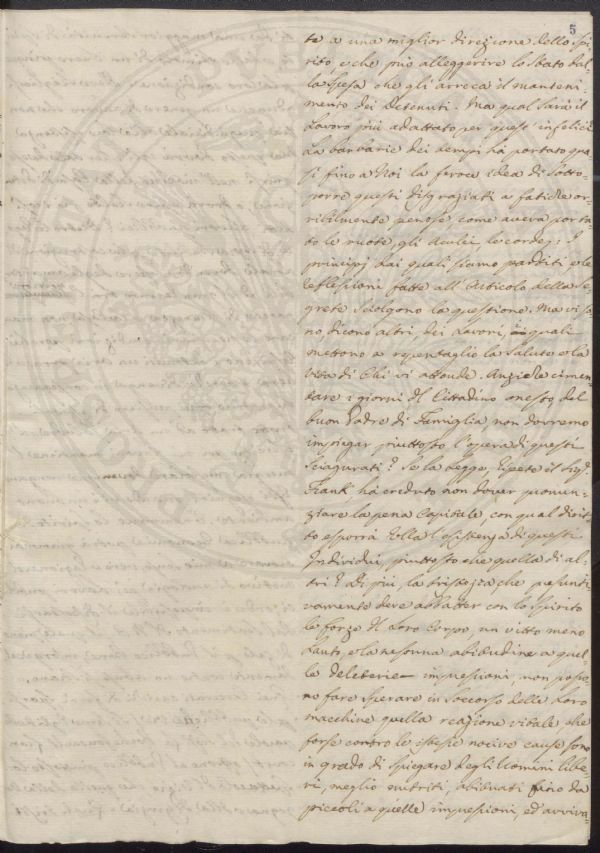 5
te a una miglior direzione dello Spi-
rito, e che può alleggerire lo Stato dal-
la Spesa che gli arreca il manteni-
mento dei Detenuti. Ma qual sarà il
Lavoro più adattato per quest' infelici?
La barbarie dei tempi ha portato qua-
si fino a Noi la feroce idea di Sotto-
porre questi disgraziati a fatiche or-
ribilmente penose come aveva porta-
to le ruote, gli aculei, le corde: I
principj dai quali siamo partiti, e le
reflessioni fatte all' Articolo della Se-
grete Sciolgono la questione. Ma vi so-
no, dicono altri, dei Lavori, i quali
mettono a repentaglio la Salute e la
Vita di Chi vi attende. Anziche cimen-
tare i giorni del Cittadino onesto, del
buon Padre di Famiglia non dovremo
impiegar piuttosto l'opera di questi
Sciagurati? Se la Legge, ripete il Sigr.
Frank, ha creduto non dover pronun-
ziare la pena Capitale, con qual dirit-
to esporrà Ella l'esistenza di questi
Individui, piuttosto che quella di al-
tri? Di più, la tristezza, che
deve abbatter con lo Spirito
le forze del Loro Corpo, un vitto meno
Lauto, e la nessuna abitudine a quel-
le deleterie impressioni, non posso-
no fare sperare in Soccorso delle Loro
macchine quella reazione vitale che
forse contro le istesse nocive cause sono
in grado di spiegare degli Uomini libe-
ri, meglio nutriti, abituati fino da
piccoli a quelle impressioni, ed avviva-